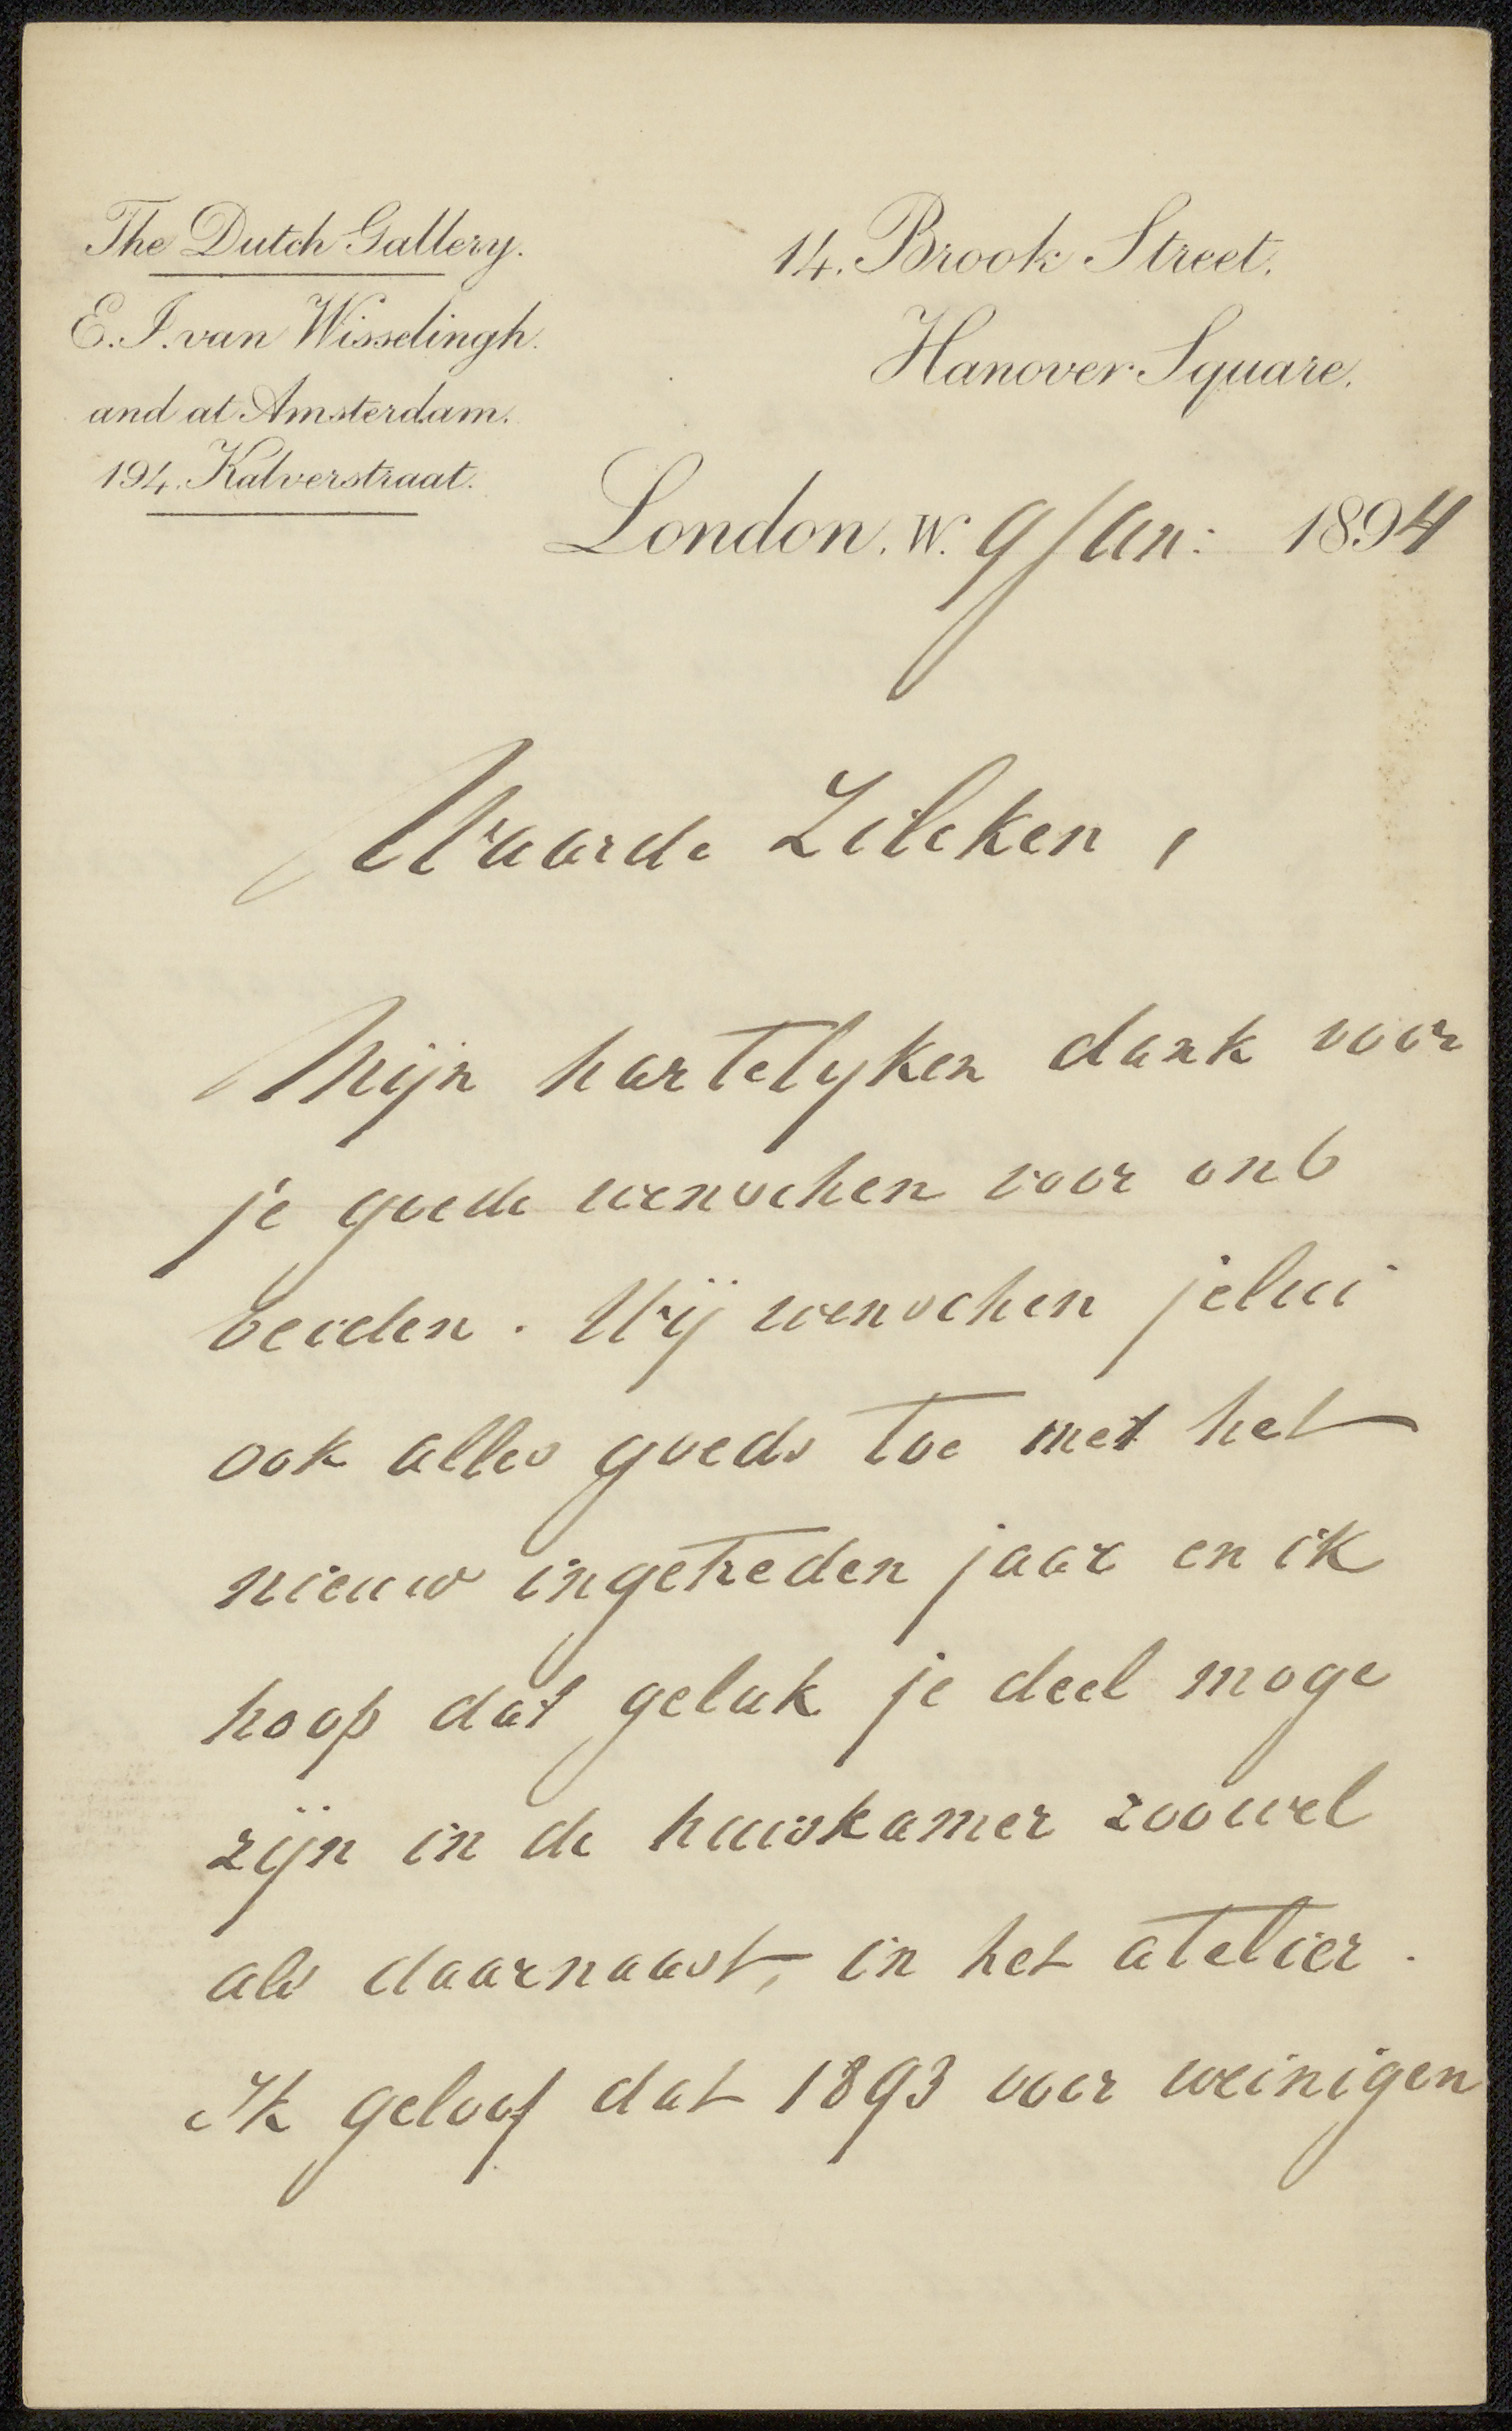 The Dutch Gallery.
E. J. van Wisselingh.
and at Amsterdam.
194. Kalverstraat.
14. Brook Street.
Hanover Square.
London. W. 9 Jan: 1894
Waarde Zilcken,
Mijn hartelyken dank voor
je goede wenschen voor ons
beiden. Wij wenschen jelui
ook alles goeds toe met het
nieuw ingetreden jaar en ik
hoop dat geluk je deel moge
zijn in de huiskamer zoowel
als daarnaast, in het atelier.
Ik geloof dat 1893 voor weinigen